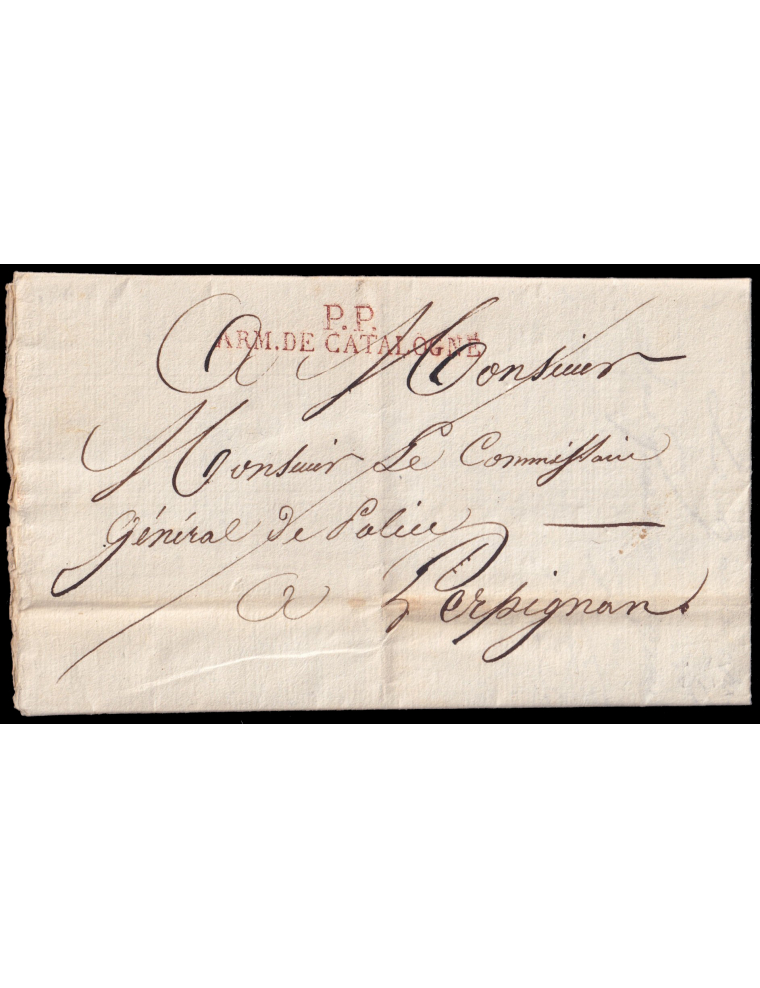 P.P.
ARM. DE CATALOGNE
A Monsieur
Monsieur Le Commissaire
Général De Police
a Perpignan.